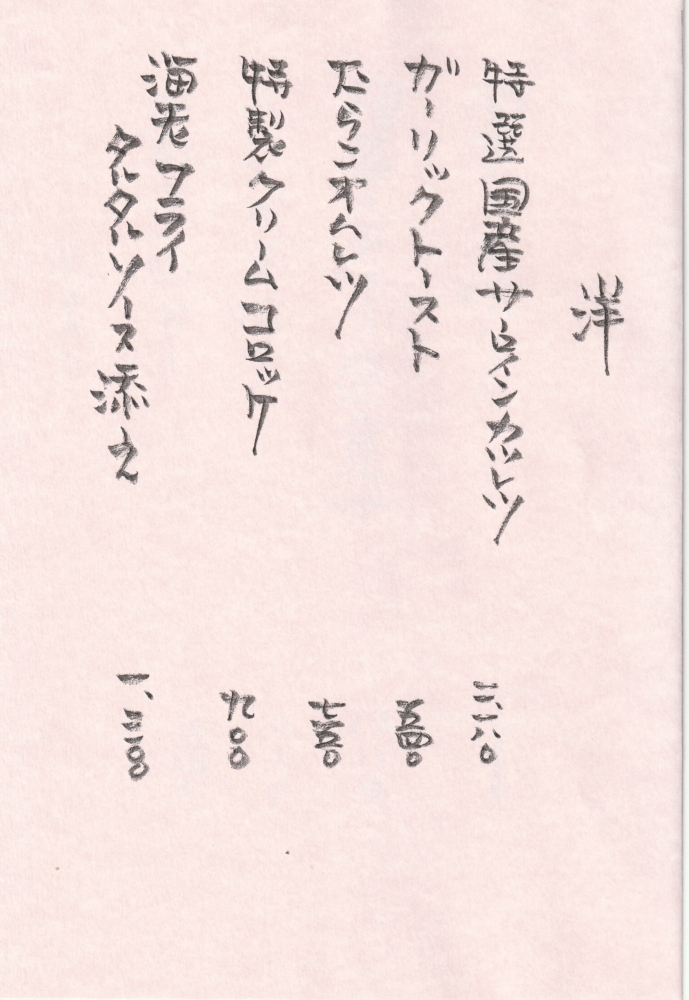 洋
特選国産サーロインカツレツ
二、一八〇
ガーリックトースト
五四〇
たらこオムレツ
七五〇
特製クリームコロッケ
九〇〇
海老フライ
タルタルソース添え
一、三〇〇